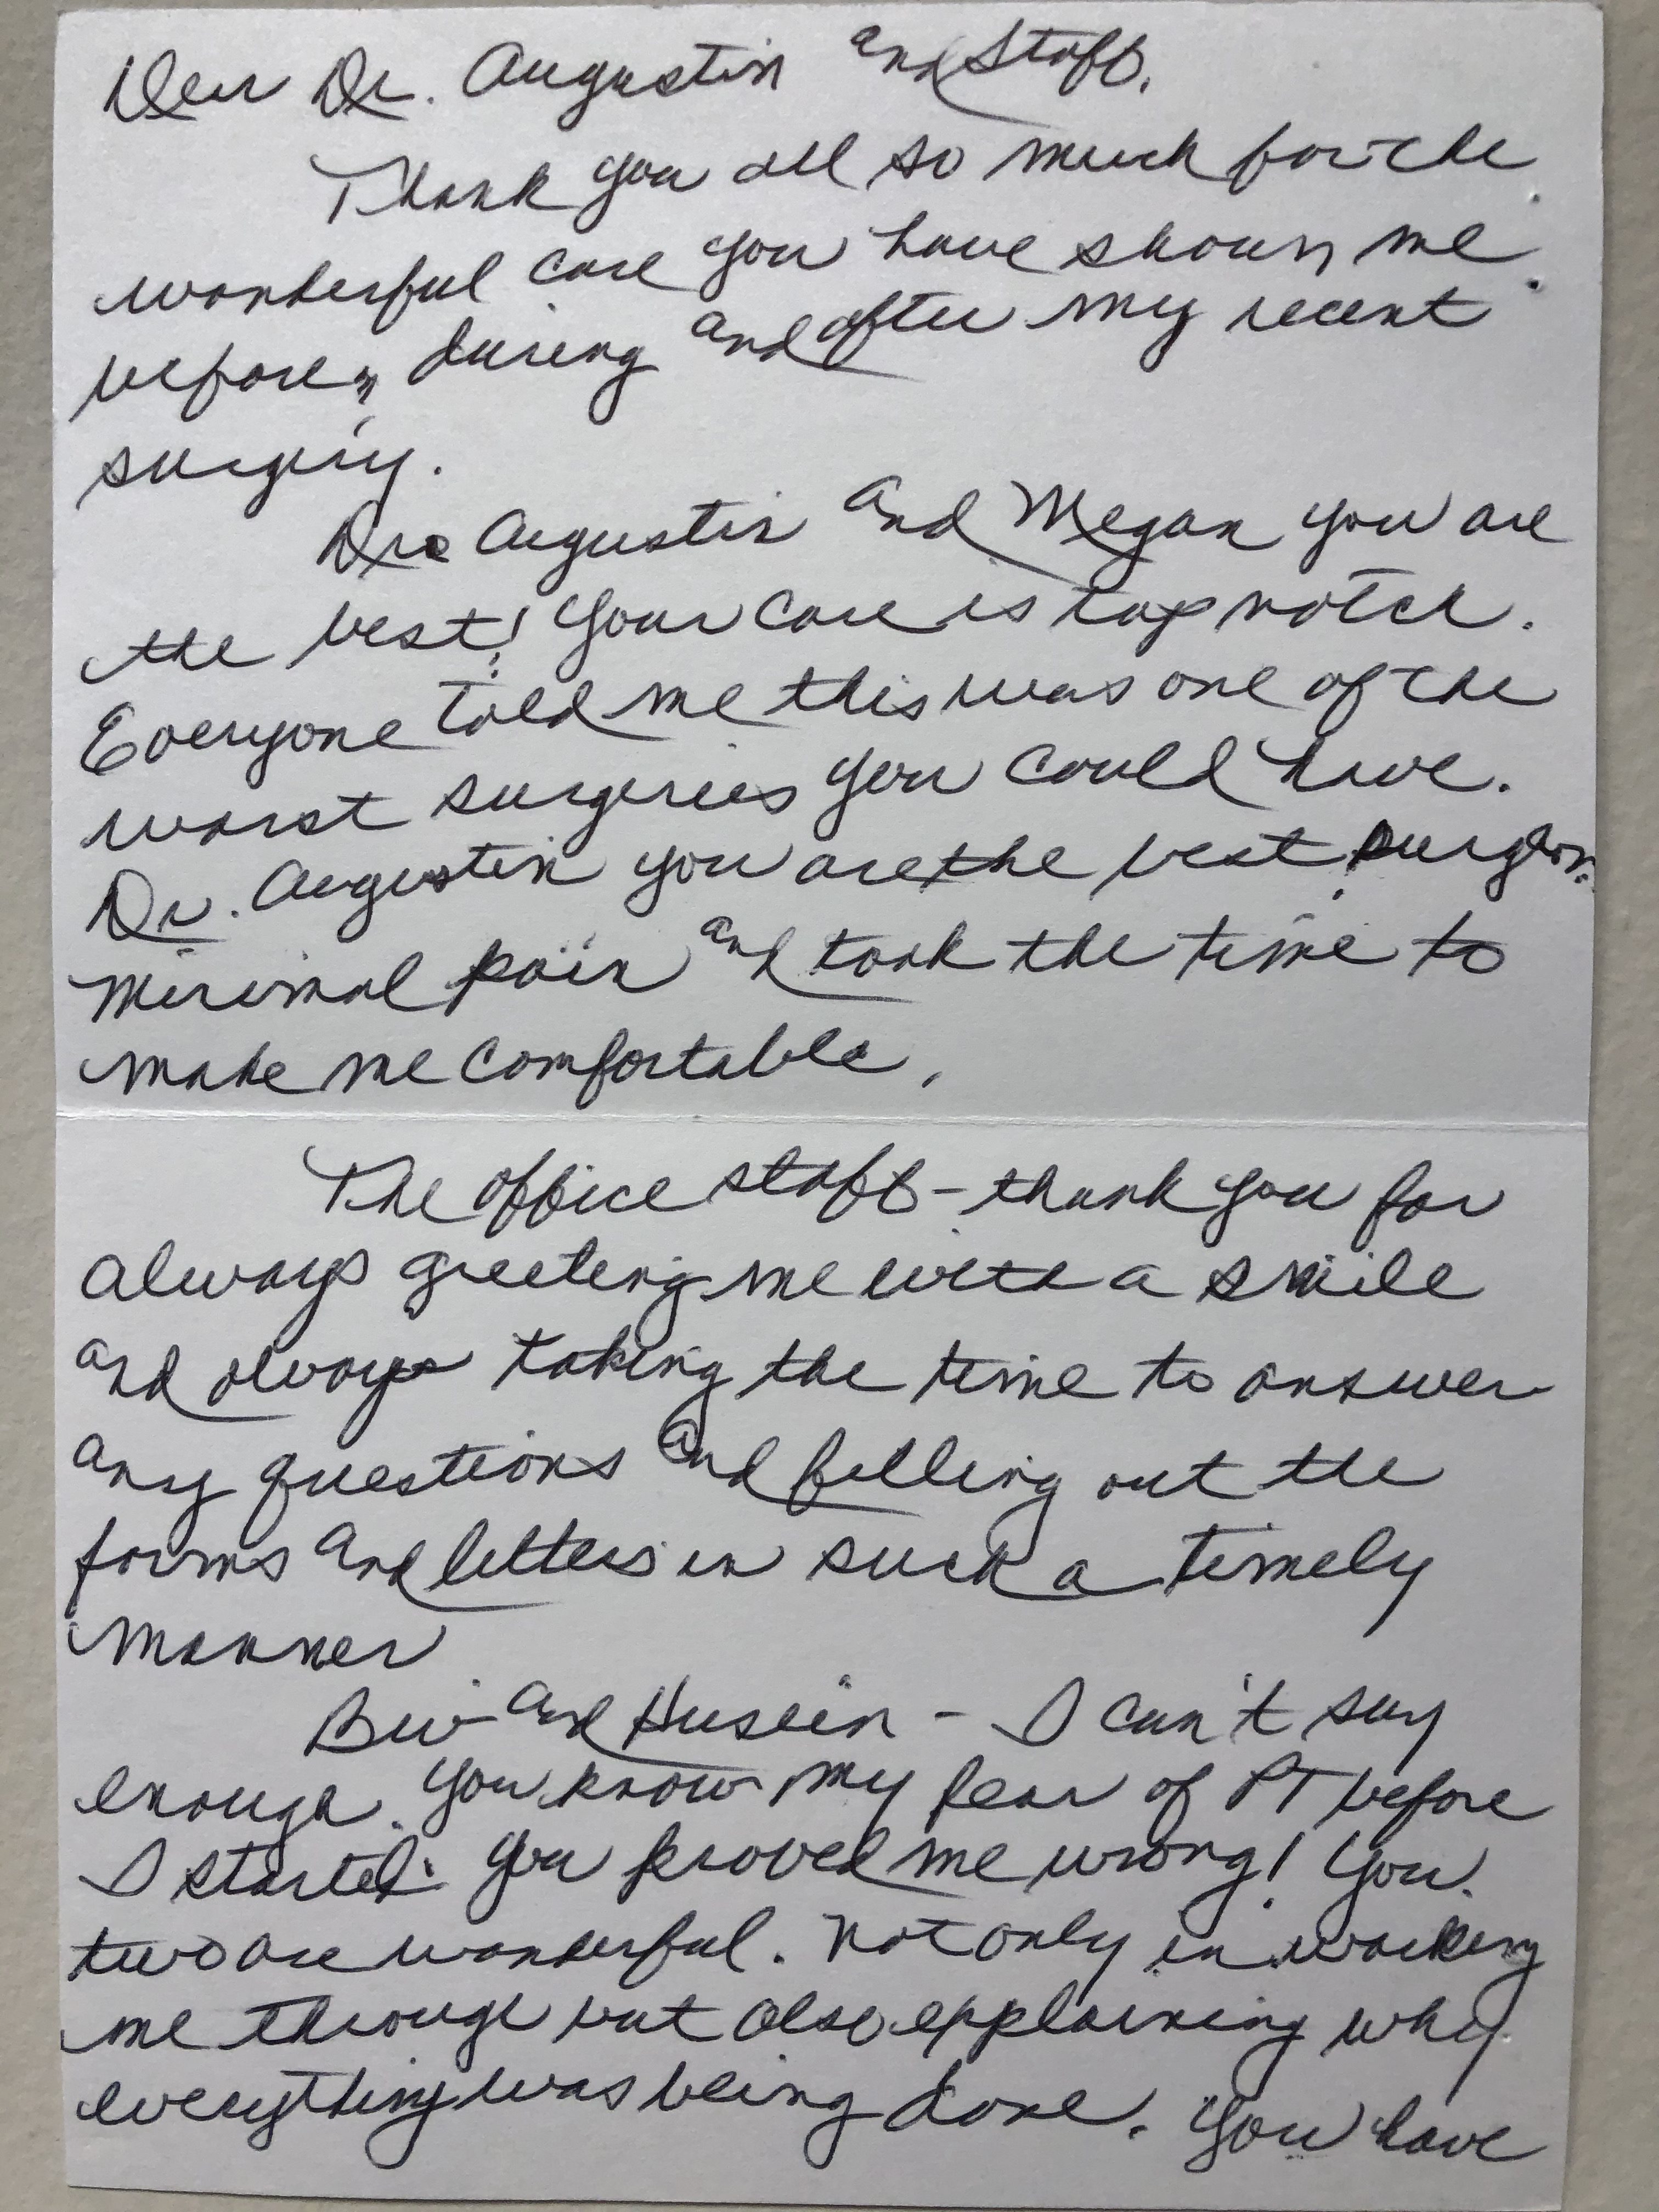 Dear Dr. Augustin and Staff,
Thank you all so much for the
wonderful care you have shown me
before, during and after my recent
surgery.
Dr. Augustin and Megan you are
the best! Your care is top notch.
Everyone told me this was one of the
worst surgeries you could have.
Dr. Augustin you are the best surgeon.
Minimal pain and took the time to
make me comfortable.
The office staff - thank you for
always greeting me with a smile
and always taking the time to answer
any questions and filling out the
forms and letters in such a timely
manner
and Husein - I can't say
enough. You know my fear of PT before
I started. You proved me wrong! You
two are wonderful. Not only in working
me through but also explaining why
everything was being done. You have